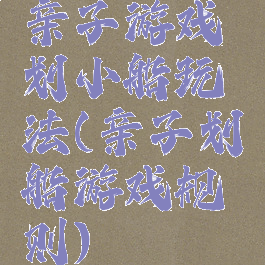 亲子游戏
划小船玩
法(亲子划
船游戏规
则)